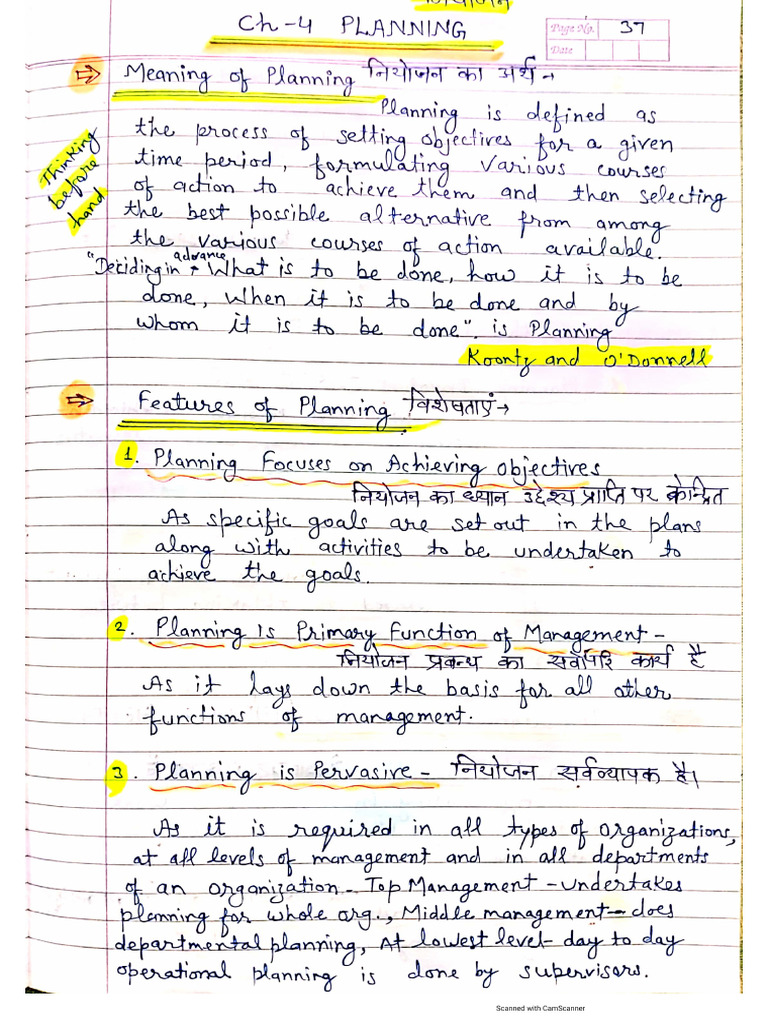 Ch-4 PLANNING
Page No. 37
Date
Meaning of Planning नियोजन का अर्थ →
Planning is defined as
the process of setting objectives for a given
time period, formulating various courses
of action to achieve them and then selecting
the best possible alternative from among
the various courses of action available.
Thinking
before
hand
"Deciding in advance What is to be done, how it is to be
done, When it is to be done and by
whom it is to be done". is Planning
Koontz and O'Donnell
Features of Planning विशेषताएं →
1. Planning Focuses on Achieving Objectives
नियोजन का ध्यान उद्देश्य प्राप्ति पर केन्द्रित
As specific goals are set out in the plans
along with activities to be undertaken to
achieve the goals.
2. Planning Is Primary Function of Management -
नियोजन प्रबन्ध का सर्वोपरि कार्य है
As it lays down the basis for all other
functions of management.
3. Planning is Pervasive - नियोजन सर्वव्यापक है।
As it is required in all types of organizations,
at all levels of management and in all departments
of an organization - Top Management - undertakes
planning for whole org., Middle management - does
departmental planning, At lowest level - day to day
operational planning is done by supervisors.
Scanned with CamScanner